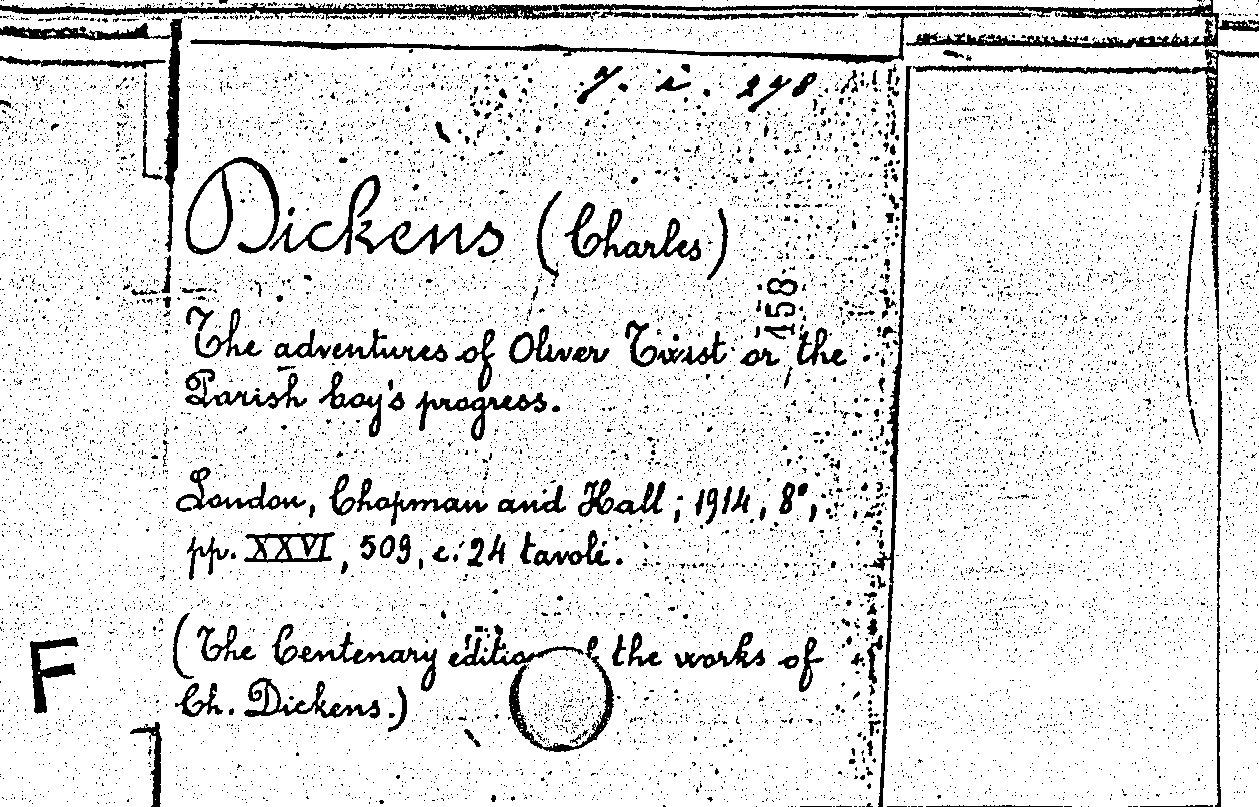 7. i. 278
Dickens (Charles)
158
The adventures of Oliver Twist or the
Parish boy's progress.
London, Chapman and Hall; 1914, 8°,
pp. XXVI, 509, c. 24 tavole.
(The Centenary edition of the works of
Ch. Dickens.)
F